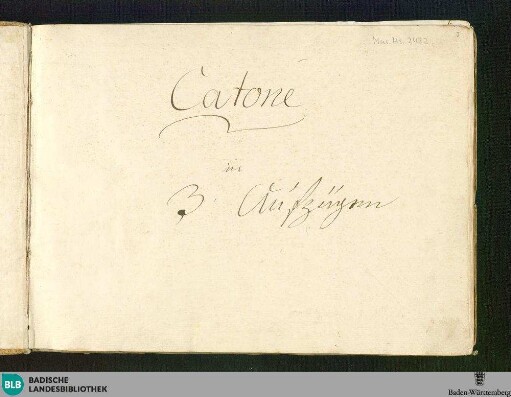 Catone
in
3 Aufzügen
BLB
BADISCHE
LANDESBIBLIOTHEK
Baden-Württemberg